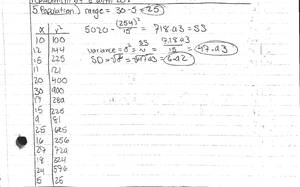 5. Population) range = 30-5 = 25
x x² 5020 - (254)²/15 = 718.93 = SS
10 100
12 144 variance = σ² = SS/N = 718.93/15 = 47.93
15 225 SD = √σ² = √47.93 = 6.92
11 121
20 400
30 900
17 289
15 225
9 81
25 625
16 256
27 729
18 324
24 576
5 25